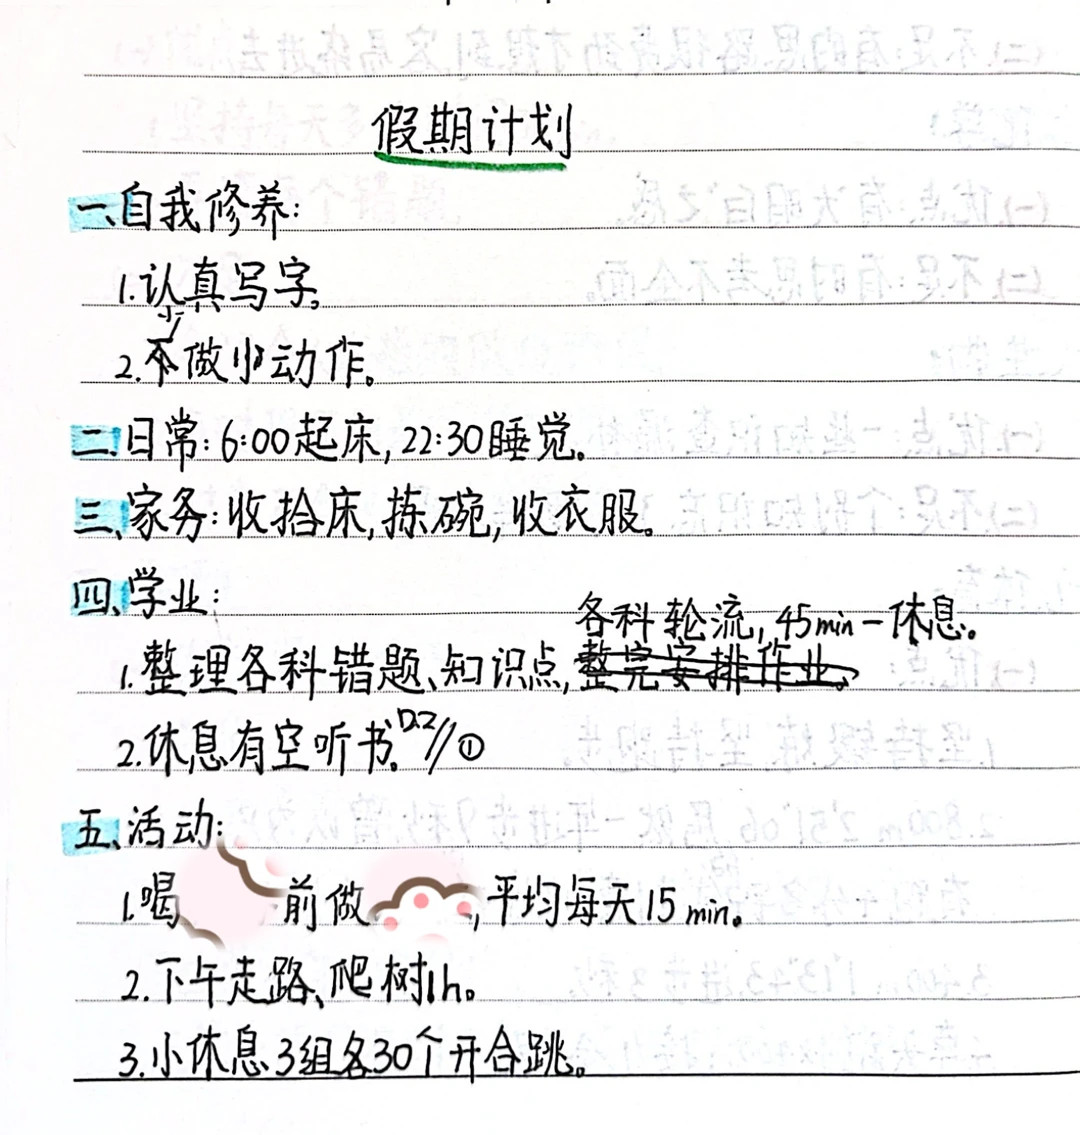 假期计划
一、自我修养:
1.认真写字。
少
2.不做小动作。
二、日常:6:00起床,22:30睡觉。
三、家务:收拾床,拣碗,收衣服。
四、学业:
各科轮流,45min一休息。
1.整理各科错题、知识点,整完安排作业。
2.休息有空听书。//①
五、活动:
1.喝 前做 ,平均每天15min。
2.下午走路、爬树1h。
3.小休息3组各30个开合跳。